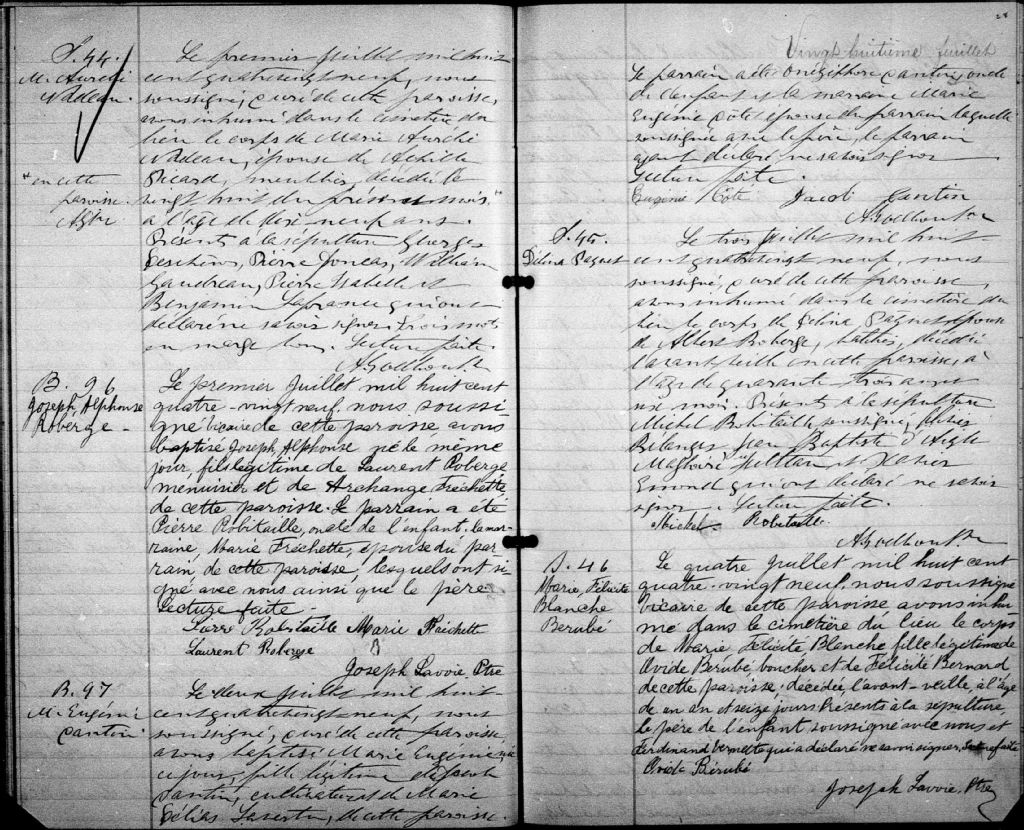 S. 44.
M. Aurélie
Nadeau.
Le premier juillet mil huit
cent quatrevingt neuf, nous
soussigné, curé de cette paroisse,
avons inhumé dans le cimetière du
lieu le corps de Marie Aurélie
Nadeau, épouse de Achille
Picard, meublier, décédée le
"en cette
paroisse.
vingt huit du présent mois"
à l'âge de dix neuf ans.
Présents à la sépulture Georges
Pierre Joncas, William
Gaudreau, Pierre Isabelle et
Benjamin qui ont
déclaré ne savoir signer. Trois mots
en marge bons. Lecture faite.
B. 96
Joseph Alphonse
Roberge -
Le premier Juillet mil huit cent
quatre-vingt neuf, nous soussi-
gné vicaire de cette paroisse avons
baptisé Joseph, Alphonse né le même
jour, fils légitime de Laurent Roberge
menuisier et de Archange Fréchette,
de cette paroisse. Le parrain a été
Pierre Robitaille, oncle de l'enfant. la mar-
raine, Marie Fréchette, épouse du par-
rain, de cette paroisse, lesquels ont si-
gné avec nous ainsi que le père
Lecture faite -
Pierre Robitaille Marie Fréchette
Laurent Roberge
Joseph Lavoie Ptre
B. 97
M. Eugénie
Cantin
Le deux juillet mil huit
cent quatrevingt-neuf, nous
soussigné, curé de cette paroisse
avons baptisé Marie Eugénie, née
ce jour, fille légitime de Jacob
Cantin, cultivateur et de Marie
de cette paroisse.
28
Vingt-huitième feuillet
Le parrain a été Onésiphore Cantin, oncle
de l'enfant et la marraine Marie
Eugénie Côté épouse du parrain laquelle
soussignée avec le père, le parrain
ayant déclaré ne savoir signer.
Lecture faite.
Eugénie Côté Jacob Cantin
S. 45.
Délina Paquet
Le trois juillet mil huit-
cent quatrevingt neuf, nous
soussigné, curé de cette paroisse,
avons inhumé dans le cimetière du
lieu le corps de Célina Paquet épouse
de Albert Roberge, décédée
l'avant veille en cette paroisse, à
l'âge de quarante-trois ans et
un mois. Présents à la sépulture
Michel Robitaille soussigné,
Bélanger, Jean Baptiste d'Aigle
et Xavier
Emond qui ont déclaré ne savoir
signer. Lecture faite.
Michel Robitaille
S. 46
Marie, Félicité
Blanche
Berubé
Le quatre Juillet mil huit cent
quatre-vingt neuf, nous soussigné
vicaire de cette paroisse avons inhu-
mé dans le cimetière du lieu le corps
de Marie Félicité Blanche fille légitime de
Ovide Berubé, boucher et de Félicité Bernard
de cette paroisse; décédée l'avant-veille, à l'âge
de un an et seize jours. Présents à la sépulture
le père de l'enfant soussigné avec nous et
Ferdinand Vermette qui a déclaré ne savoir signer, Lecture faite
Ovide Bérubé
Joseph Lavoie, Ptre